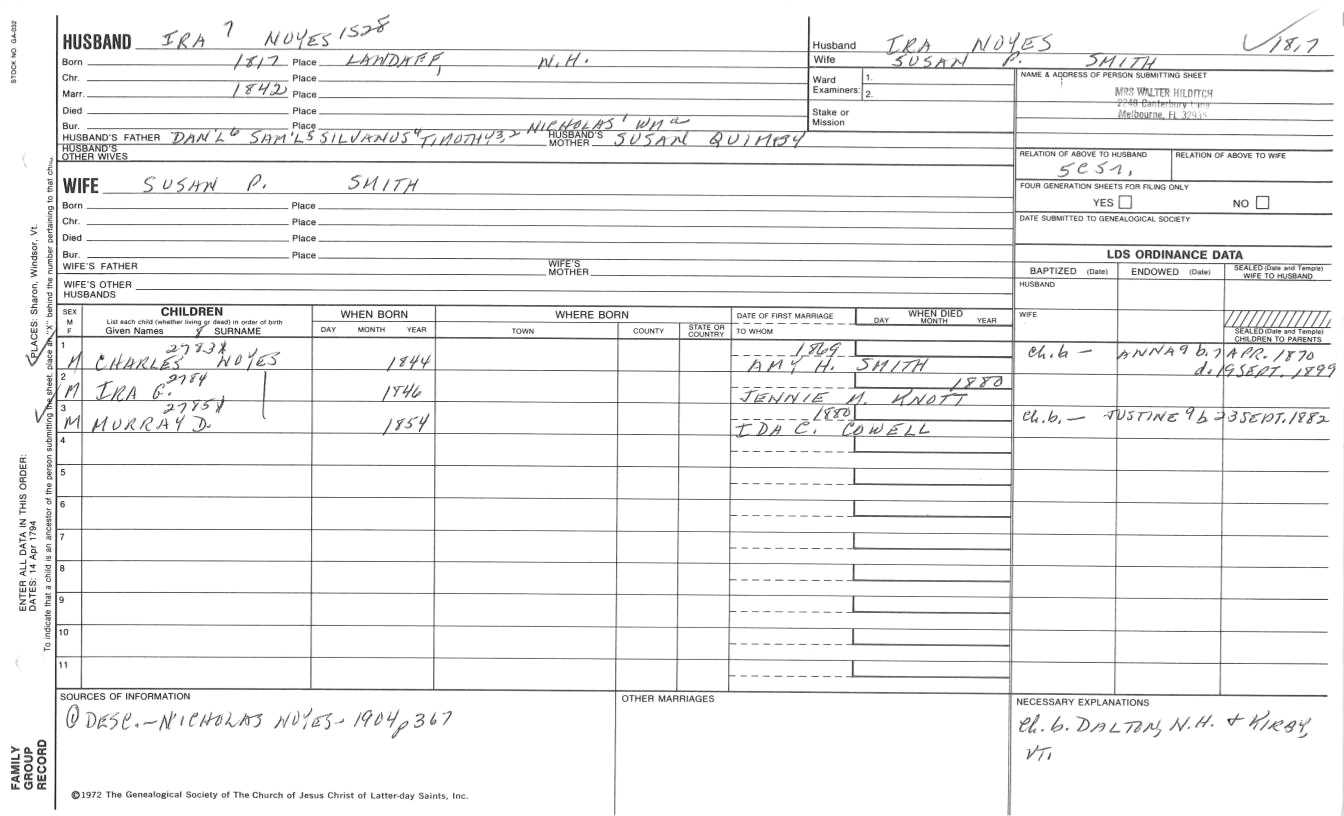 STOCK NO. GA-032
HUSBAND IRA 7 NOYES 1528
Born 1817 Place LANDAFF, N.H.
Chr. Place
Marr. 1842 Place
Died Place
Bur. Place
HUSBAND'S FATHER DAN'L 6 SAM'L 5 SILVANUS 4 TIMOTHY 3,2 NICHOLAS 1 WM a HUSBAND'S MOTHER SUSAN QUIMBY
HUSBAND'S OTHER WIVES
WIFE SUSAN P. SMITH
Born Place
Chr. Place
Died Place
Bur. Place
WIFE'S FATHER WIFE'S MOTHER
WIFE'S OTHER HUSBANDS
Husband IRA NOYES 1817
Wife SUSAN P. SMITH
Ward Examiners: 1.
2.
Stake or Mission
NAME & ADDRESS OF PERSON SUBMITTING SHEET
MRS WALTER HILDITCH
2240 Canterbury Lane
Melbourne, FL 32935
RELATION OF ABOVE TO HUSBAND RELATION OF ABOVE TO WIFE
5C5r.
FOUR GENERATION SHEETS FOR FILING ONLY
YES NO
DATE SUBMITTED TO GENEALOGICAL SOCIETY
LDS ORDINANCE DATA
BAPTIZED (Date) ENDOWED (Date) SEALED (Date and Temple) WIFE TO HUSBAND
HUSBAND
WIFE
SEALED (Date and Temple) CHILDREN TO PARENTS
SEX M F
CHILDREN
List each child (whether living or dead) in order of birth
Given Names 8 SURNAME
WHEN BORN
DAY MONTH YEAR
WHERE BORN
TOWN COUNTY STATE OR COUNTRY
DATE OF FIRST MARRIAGE
TO WHOM
WHEN DIED
DAY MONTH YEAR
1 M 2783x CHARLES NOYES 1844 1869 AMY H. SMITH Ch. b - ANNA 9 b. 7 APR. 1870
d. 19 SEPT. 1899
2 M 2784 IRA G. 1846 JENNIE M. KNOTT 1880
3 M 2785x MURRAY D. 1854 1880 IDA C. COWELL Ch. b. - JUSTINE 9 b 23 SEPT. 1882
4
5
6
7
8
9
10
11
SOURCES OF INFORMATION
① DESC. - NICHOLAS NOYES - 1904 p 367
OTHER MARRIAGES
NECESSARY EXPLANATIONS
Ch. b. DALTON, N.H. + KIRBY,
VT.
©1972 The Genealogical Society of The Church of Jesus Christ of Latter-day Saints, Inc.
FAMILY GROUP RECORD
ENTER ALL DATA IN THIS ORDER:
DATES: 14 Apr 1794
PLACES: Sharon, Windsor, Vt.
To indicate that a child is an ancestor of the person submitting the sheet, place an "X" behind the number pertaining to that child.